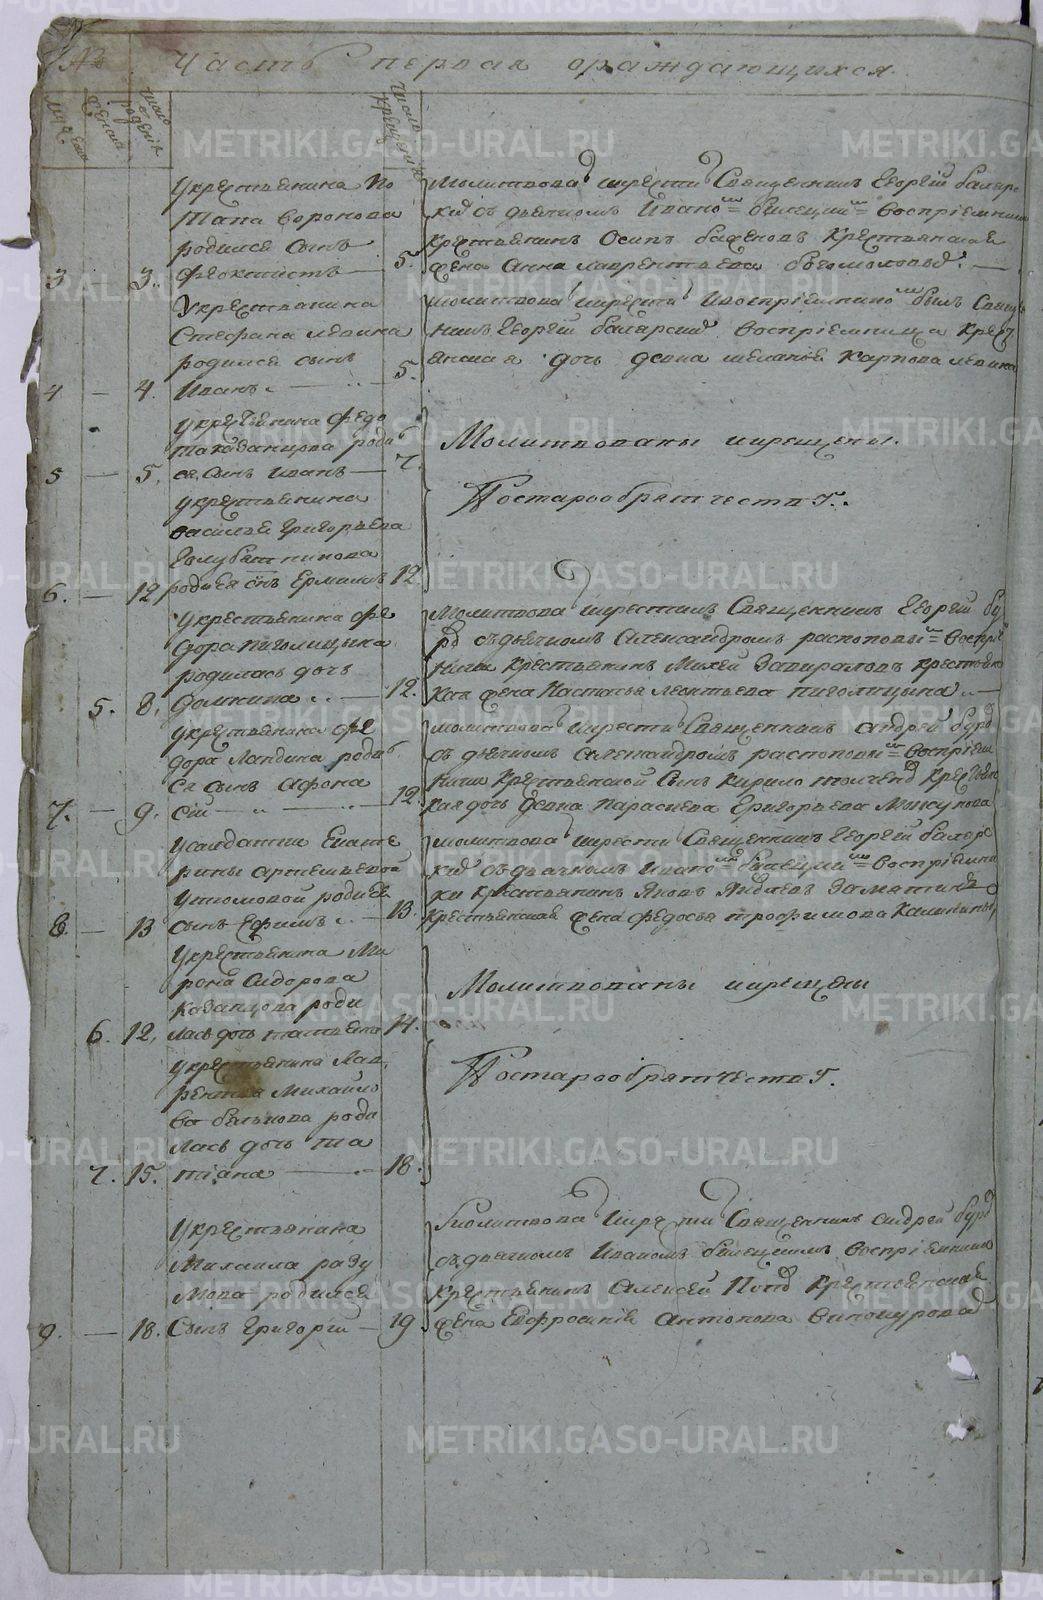 Часть первая ораждающихся.
мужеска
женска
Число рождения
Число крещения
У крестьянина По
тапа Воронова
родился сынъ
3 — 3. Феоктистъ — 5.
Молитвовалъ и крестилъ Священникъ Георгий
съ дьячкомъ Иваномъ Билецкимъ воспріемники
крестьянинъ Осипъ Баженовъ крестьянская
жена Анна Лаврентьева Богомолова. —
У крестьянина
Стефана Левина
родился сынъ
4 — 4. Иванъ — 5.
молитвовалъ и крестилъ и воспріемникомъ былъ Священ
никъ Георгий воспріемница крестъ
янская дочь девка Меланья Карпова Левина
У крестьянина Федо
та Казанцова родил
5 — 5. ся сынъ Иванъ — 7.
Молитвованы и крещены.
По старообрятчеству.
У крестьянина
Василья Григорьева
Голубятникова
6. — 12 родился снъ Ермилъ 12.
У крестьянина Фе
дора Пиголицына
родилась дочь
5. 8. Домнина .. — 12.
Молитвовалъ и крестилъ Священникъ Георгий
съ дьячкомъ Александромъ Распоповымъ Воспріем
ники крестьянинъ Михей Завираловъ крестьянс
кая жена Настасья Леонтьева Пиголицына .. —
У крестьянина Фе
дора Лапдина родил
ся сынъ Афона
7. — 9. сій — 12.
молитвовалъ и крестилъ Священникъ Андрей
съ дьячкомъ Александромъ Распоповымъ воспріем
ники крестьянской сынъ Кирило крестьянс
кая дочь девка Параскева Григорьева
У салдатки Екате
рины Артемьевой
Утюмовой родился
8 — 13 сынъ Ефимъ .. — 13.
молитвовалъ и крестилъ Священникъ Георгий
съ дьячкомъ Иваномъ Билецкимъ воспріемни
ки крестьянинъ Яковъ Яковлевъ Замятинъ
крестьянская жена Федосья Трофимова Калинина
У крестьянина Ми
рона Сидорова
Казанцова роди
6. 12. лась дочь Татьяна 14.
Молитвованы и крещены
У крестьянина Лав
рентья Михайло
ва Балькова роди
лась дочь Та
7. 15. тіана — 18.
По старообрятчеству.
У крестьянина
Михаила Разу
мова родился
9. — 18. Сынъ Григорій — 19.
Молитвовалъ и крестилъ Священникъ Андрей
съ дьячкомъ Иваномъ Билецкимъ воспріемники
крестьянинъ Алексей Попо крестьянская
жена Евфросинія Антонова Винокурова
METRIKI.GASO-URAL.RU